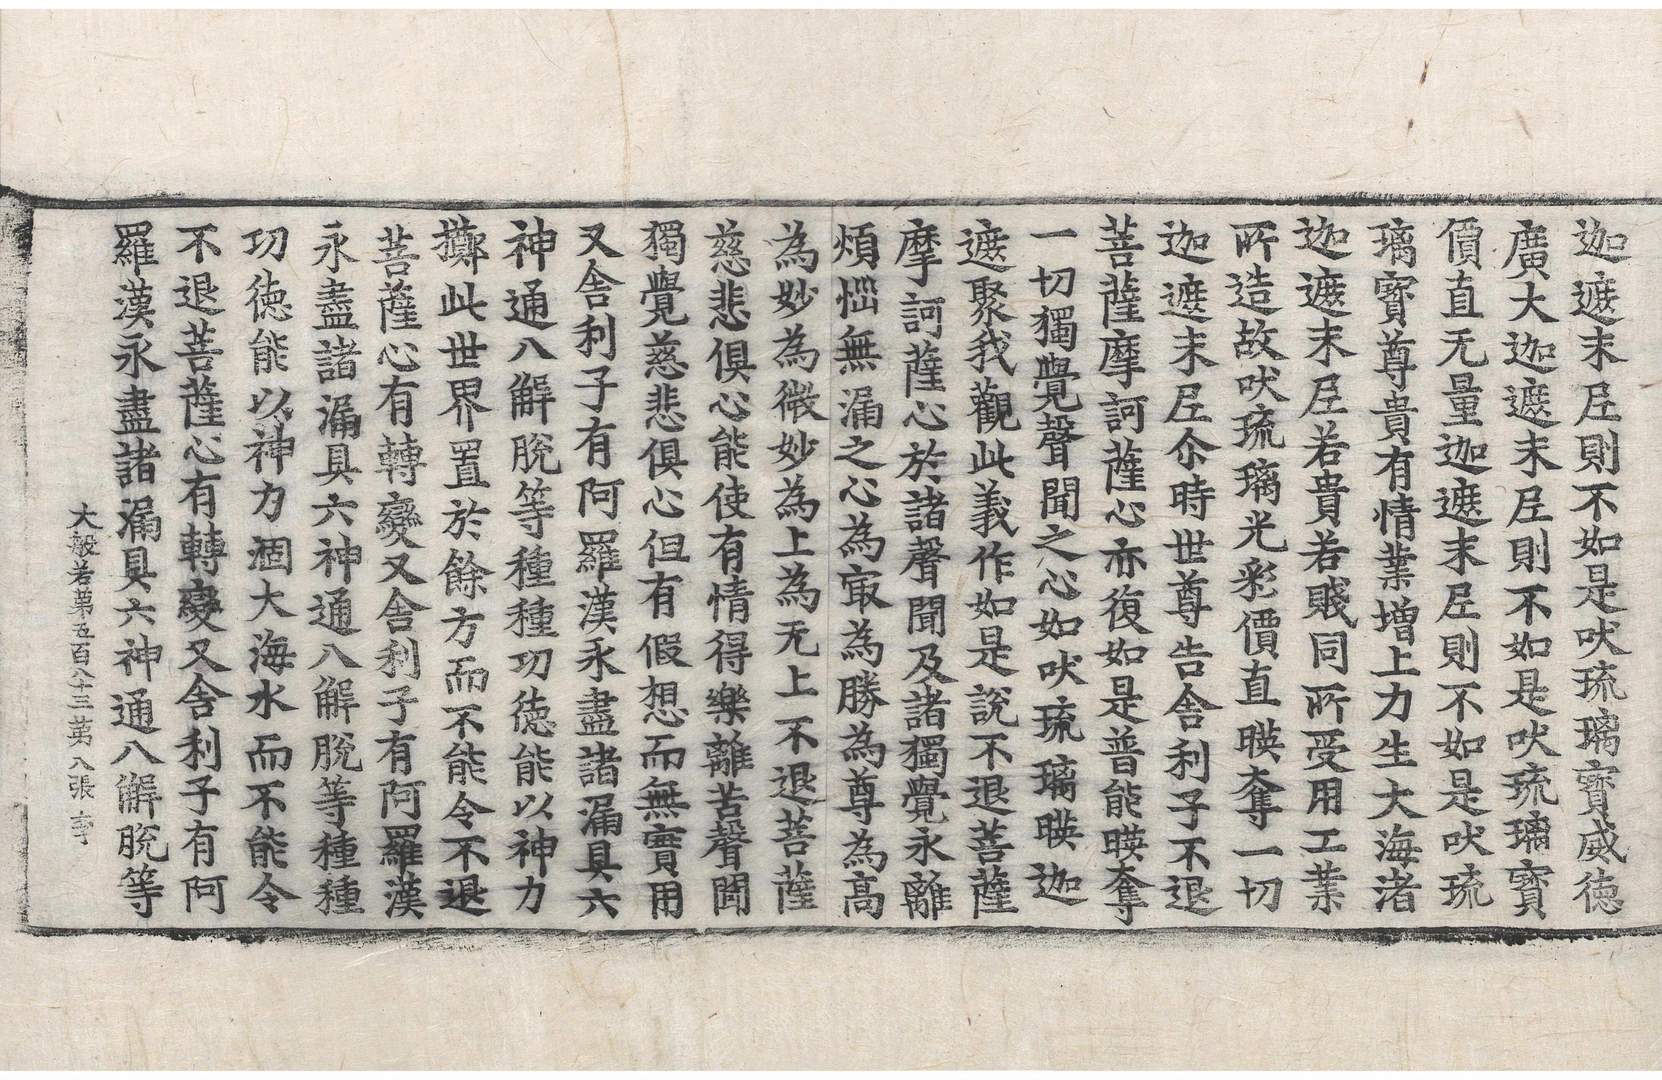 迦遮末尼則不如是吠琉璃寳威德
廣大迦遮末尼則不如是吠琉璃寳
價直无量迦遮末尼則不如是吠琉
璃寳尊貴有情業增上力生大海渚
迦遮末尼若貴若賤同所受用工業
所造故吠琉璃光彩價直暎奪一切
迦遮末尼尒時世尊告舍利子不退
菩薩摩訶薩心亦復如是普能暎奪
一切獨覺聲聞之心如吠琉璃暎迦
遮聚我觀此義作如是說不退菩薩
摩訶薩心於諸聲聞及諸獨覺永離
煩惱無漏之心為㝡為勝為尊為高
為妙為微妙為上為无上不退菩薩
慈悲俱心能使有情得樂離苦聲聞
獨覺慈悲俱心但有假想而無實用
又舍利子有阿羅漢永盡諸漏具六
神通八解脫等種種功德能以神力
擲此世界置於餘方而不能令不退
菩薩心有轉變又舍利子有阿羅漢
永盡諸漏具六神通八解脫等種種
功德能以神力涸大海水而不能令
不退菩薩心有轉變又舍利子有阿
羅漢永盡諸漏具六神通八解脫等
大般若第五百八十三第八張